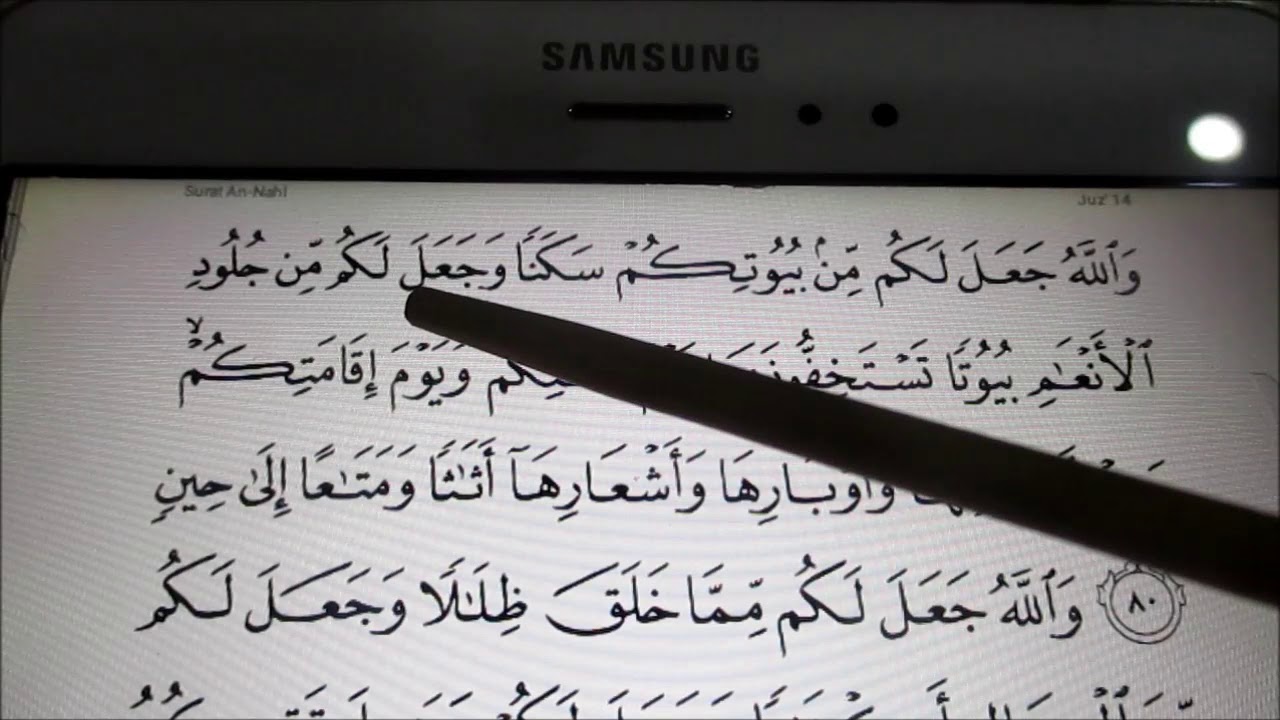 SAMSUNG
Surat An-Nahl Juz' 14
وَٱللَّهُ جَعَلَ لَكُم مِّنۢ بُيُوتِكُمْ سَكَنًا وَجَعَلَ لَكُم مِّن جُلُودِ
ٱلْأَنْعَٰمِ بُيُوتًا تَسْتَخِفُّونَهَا وَيَوْمَ إِقَامَتِكُمْ ۙ
وَأَوْبَارِهَا وَأَشْعَارِهَآ أَثَٰثًا وَمَتَٰعًا إِلَىٰ حِينٍ
٨٠ وَٱللَّهُ جَعَلَ لَكُم مِّمَّا خَلَقَ ظِلَٰلًا وَجَعَلَ لَكُم